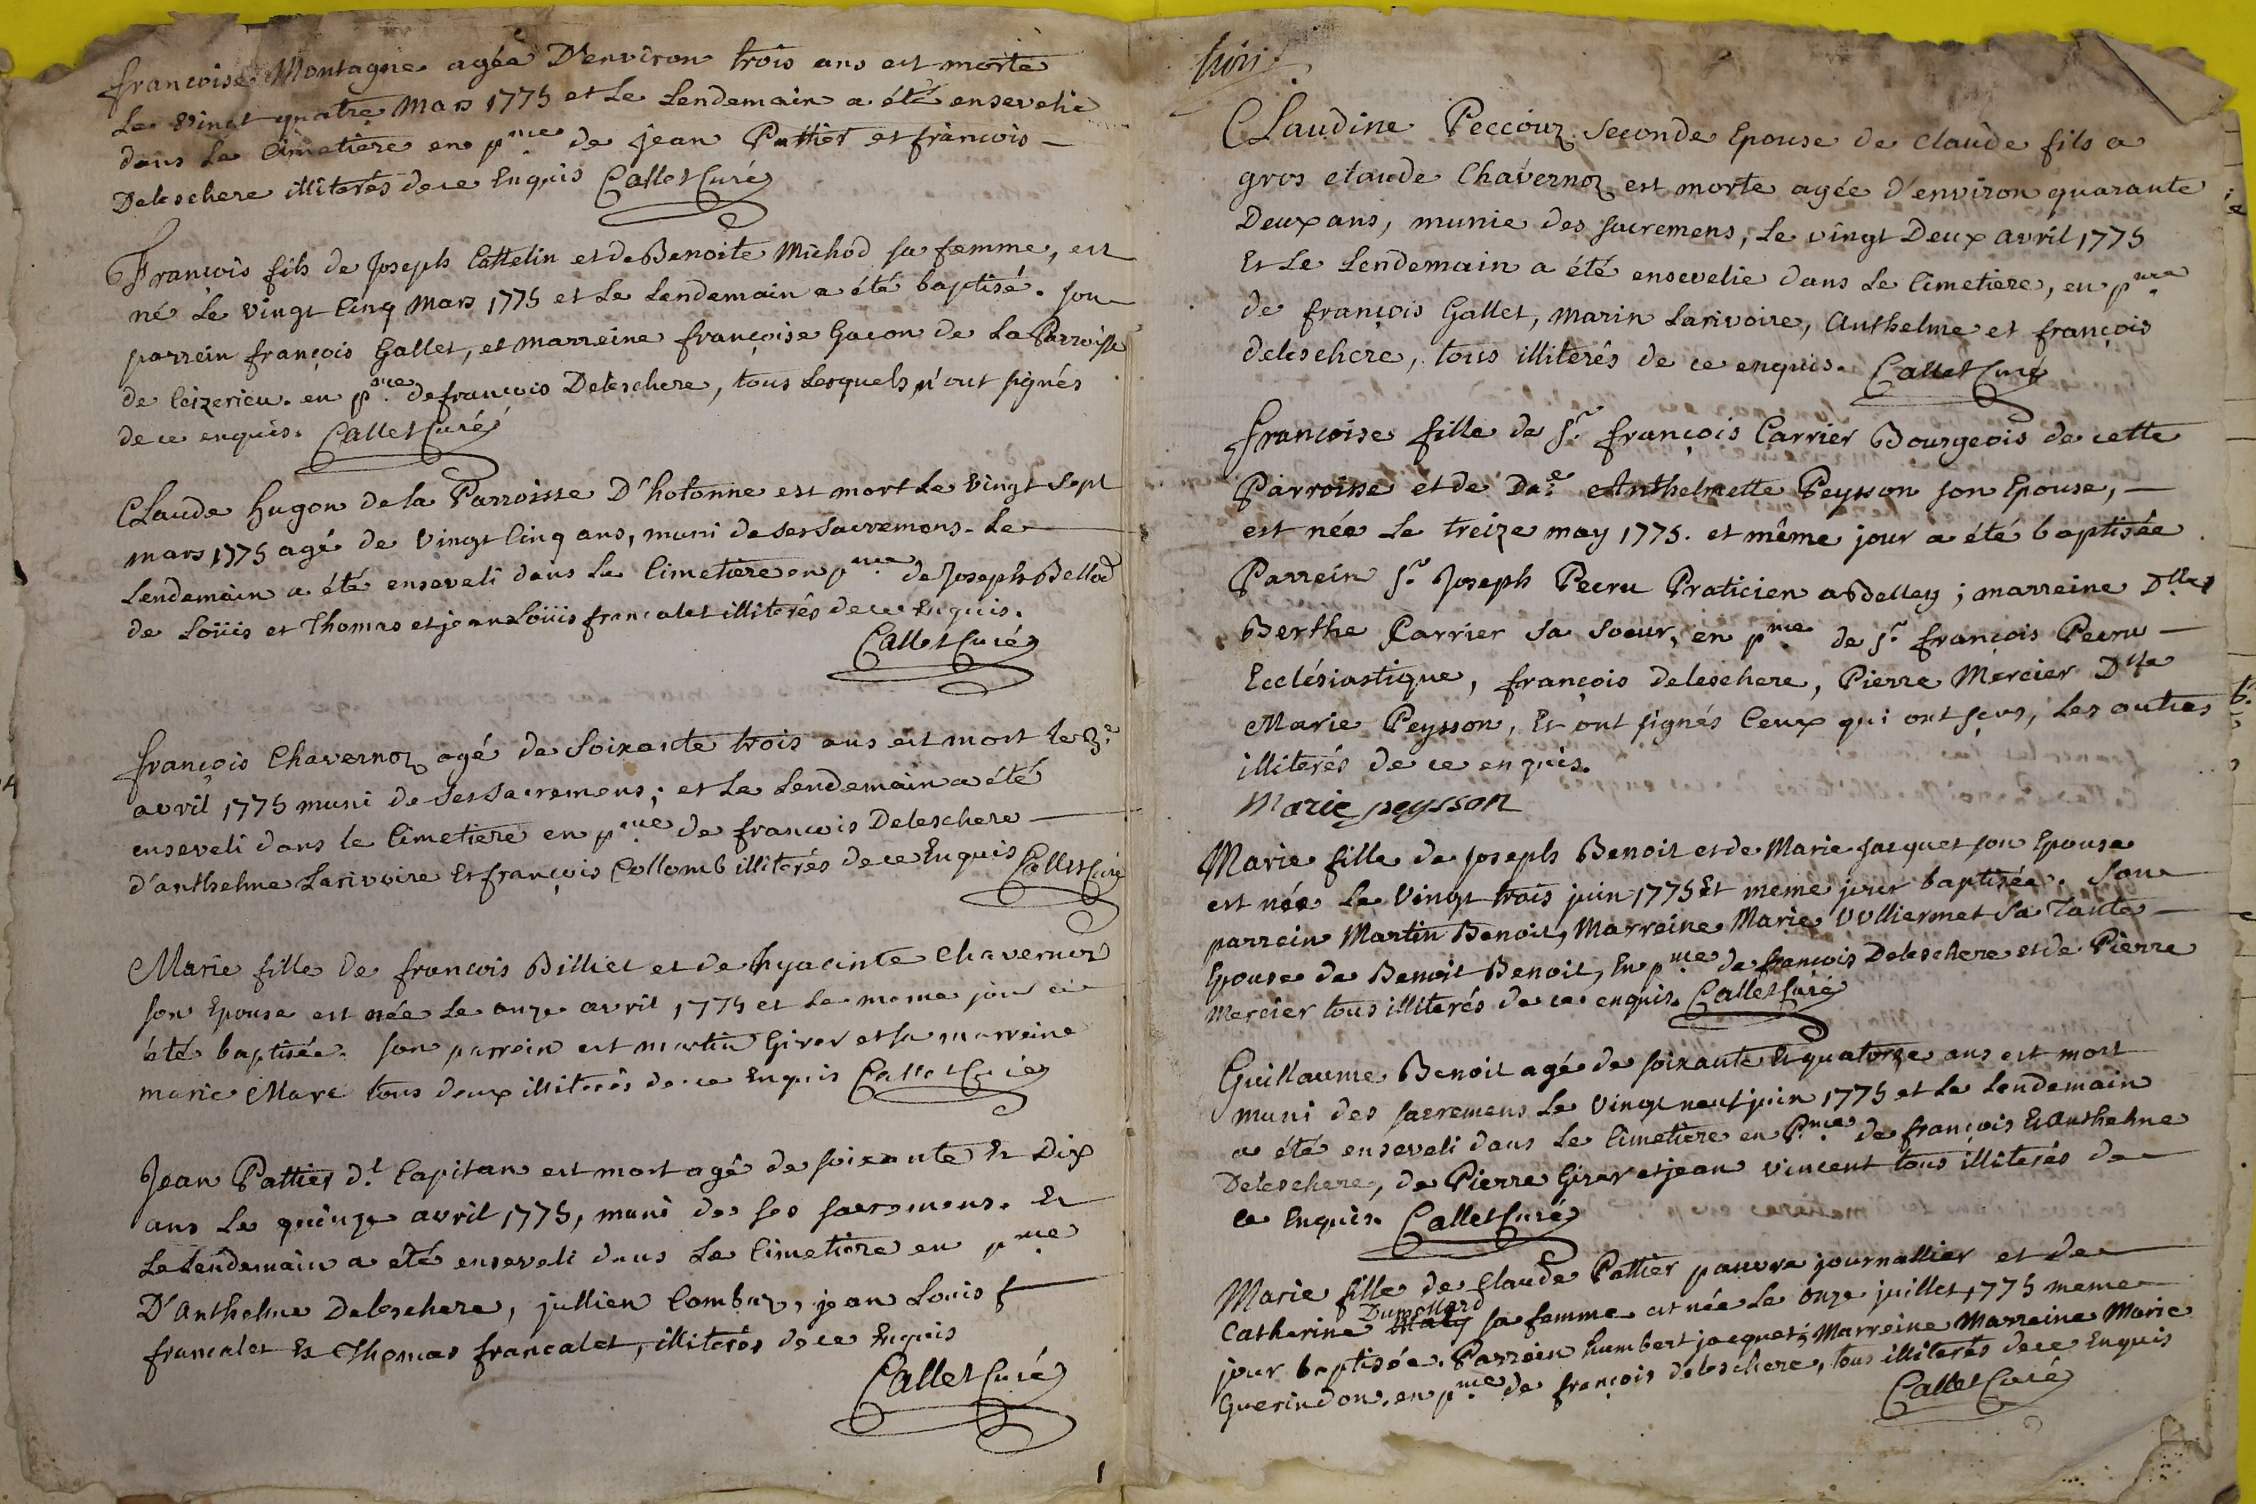 françoise Montagnie agée D'environ trois ans est morte
Le vingt quatre Mars 1775 et Le Lendemain a été ensevelie
dans Le Cimetiere en pnce de jean Pattier et françois
Deleschere illiterés de ce Enquis Callet Curé
François fils de Joseph Cattelin et de Benoite Michod sa femme, est
né Le vingt Cinq Mars 1775 et Le Lendemain a été baptisé. son
parrein françois Gallet, et marreine françoise Gacon de La Parroisse
de Ceizerieu. en pnce de françois Deleschere, tous Lesquels n'ont signés
de ce enquis. Callet Curé
CLaude hugon de la Parroisse D'hotonne est mort Le vingt Sept
mars 1775 agé de vingt Cinq ans, muni de ses Sacremens. Le
Lendemain a été enseveli dans Le Cimetiere en pnce de Joseph Bellod
de Loüis et Thomas et jean Loüis francalet illiterés de ce Enquis.
Callet Curé
françois Chavernoz agé de Soixante trois ans est mort le 3e
avril 1775 muni de ses Sacremens; et Le Lendemain a été
enseveli dans le Cimetiere en pnce de françois Deleschere
d'anthelme Larivoire Et françois Collomb illiterés de ce Enquis Callet Curé
Marie fille de françois Billiet et de hyacinte Chavernoz
son Epouse est née Le onze avril 1775 et Le meme jour a
été baptisée. son parrein est martin Girer et sa marreine
marie Mare tous deux illiterés de ce Enquis Callet Curé
Jean Pattier dt Capitan est mort agé de soixante Et Dix
ans Le quinze avril 1775, muni de ses sacremens. Et
Le Lendemain a été enseveli dans Le Cimetiere en pnce
D'Anthelme Deleschere, jullien Combuz, jean Louis f
francalet Et Thomas francalet, illiterés de ce Enquis
Callet Curé
1
trois
CLaudine Peccouz Seconde Epouse de claude fils a
gros claude Chavernoz est morte agée d'environ quarante
Deux ans, munie des sacremens, Le vingt Deux avril 1775
Et Le Lendemain a été ensevelie dans Le Cimetiere, en pnce
de françois Gallet, marin Larivoire, Anthelme et françois
deleschere, tous illiterés de ce enquis. Callet Curé
françoise fille de sr françois Carrier Bourgeois de cette
Parroisse et de Dae Anthelmette Peysson son Epouse,
est née Le treize may 1775. et même jour a été baptisée
Parrein sr Joseph Pecru Praticien a Belley; marreine Dlle
Berthe Carrier Sa Soeur, en pnce de sr françois Pecru
Ecclésiastique, françois deleschere, Pierre Mercier Dlle
Marie Peysson, Et ont signés Ceux qui ont sçus, Les autres
illiterés de ce enquis.
Marie peysson
Marie fille de Joseph Benoit et de Marie Jacquet son Epouse
est née Le vingt trois juin 1775 Et meme jour baptisée. Son
parrein Martin Benoit, Marreine Marie Vulliermet Sa Tante
Epouse de Benoit Benoit, En pnce de françois Deleschere et de Pierre
Mercier tous illiterés de ce enquis. Callet Curé
Guillaume Benoit agé de soixante Et quatorze ans est mort
muni des sacremens Le vingt neuf juin 1775 et Le Lendemain
a été enseveli dans Le Cimetiere en Pnce de françois Et Anthelme
Deleschere, de Pierre Girer et jean vincent tous illiterés de
ce Enquis. Callet Curé
Marie fille de Claude Pattier pauvre journallier et de
Catherine Dumollard sa femme est née Le onze juillet 1775 meme
jour baptisée. Parrein humbert jacquet; Marreine Marreine Marie
Guerindon. en pnce de françois deleschere, tous illiterés de ce Enquis
Callet Curé